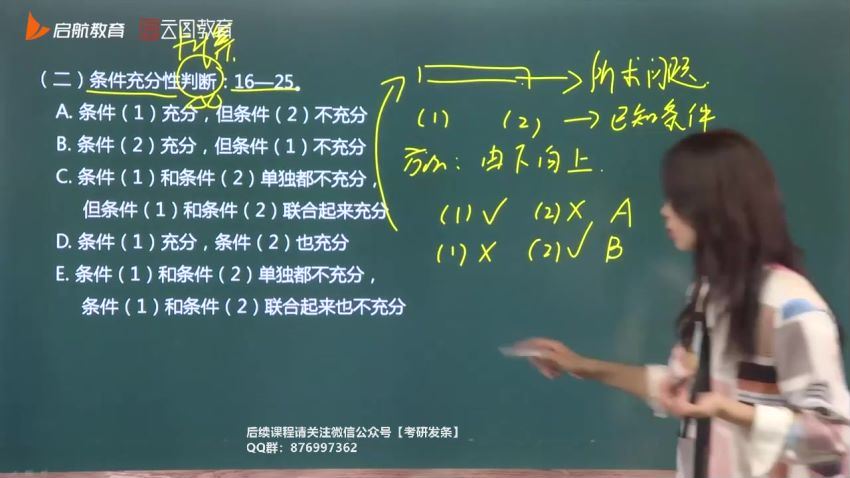 启航教育 云图教育
计算
（二）条件充分性判断：16—25。
A. 条件（1）充分，但条件（2）不充分
B. 条件（2）充分，但条件（1）不充分
C. 条件（1）和条件（2）单独都不充分，
但条件（1）和条件（2）联合起来充分
D. 条件（1）充分，条件（2）也充分
E. 条件（1）和条件（2）单独都不充分，
条件（1）和条件（2）联合起来也不充分
→ 所求问题.
(1) (2) → 已知条件
方向：由下向上.
(1)√ (2)× A
(1)× (2)√ B
后续课程请关注微信公众号【考研发条】
QQ群：876997362